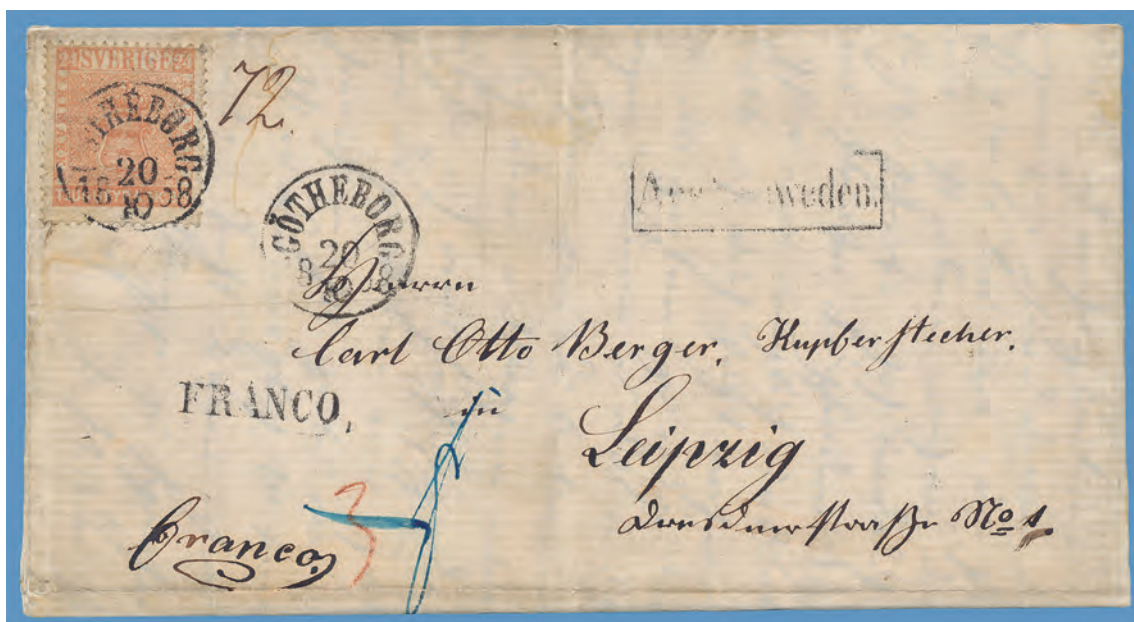 24 SVERIGE 24
GÖTHEBORG
20
18 58
10
72.
GÖTHEBORG
20
8 8
10
Aus Schweden.
Herrn
Carl Otto Berger, Kupferstecher.
FRANCO,
in
Leipzig
3
Franco
Dresdnerstraße No 1.